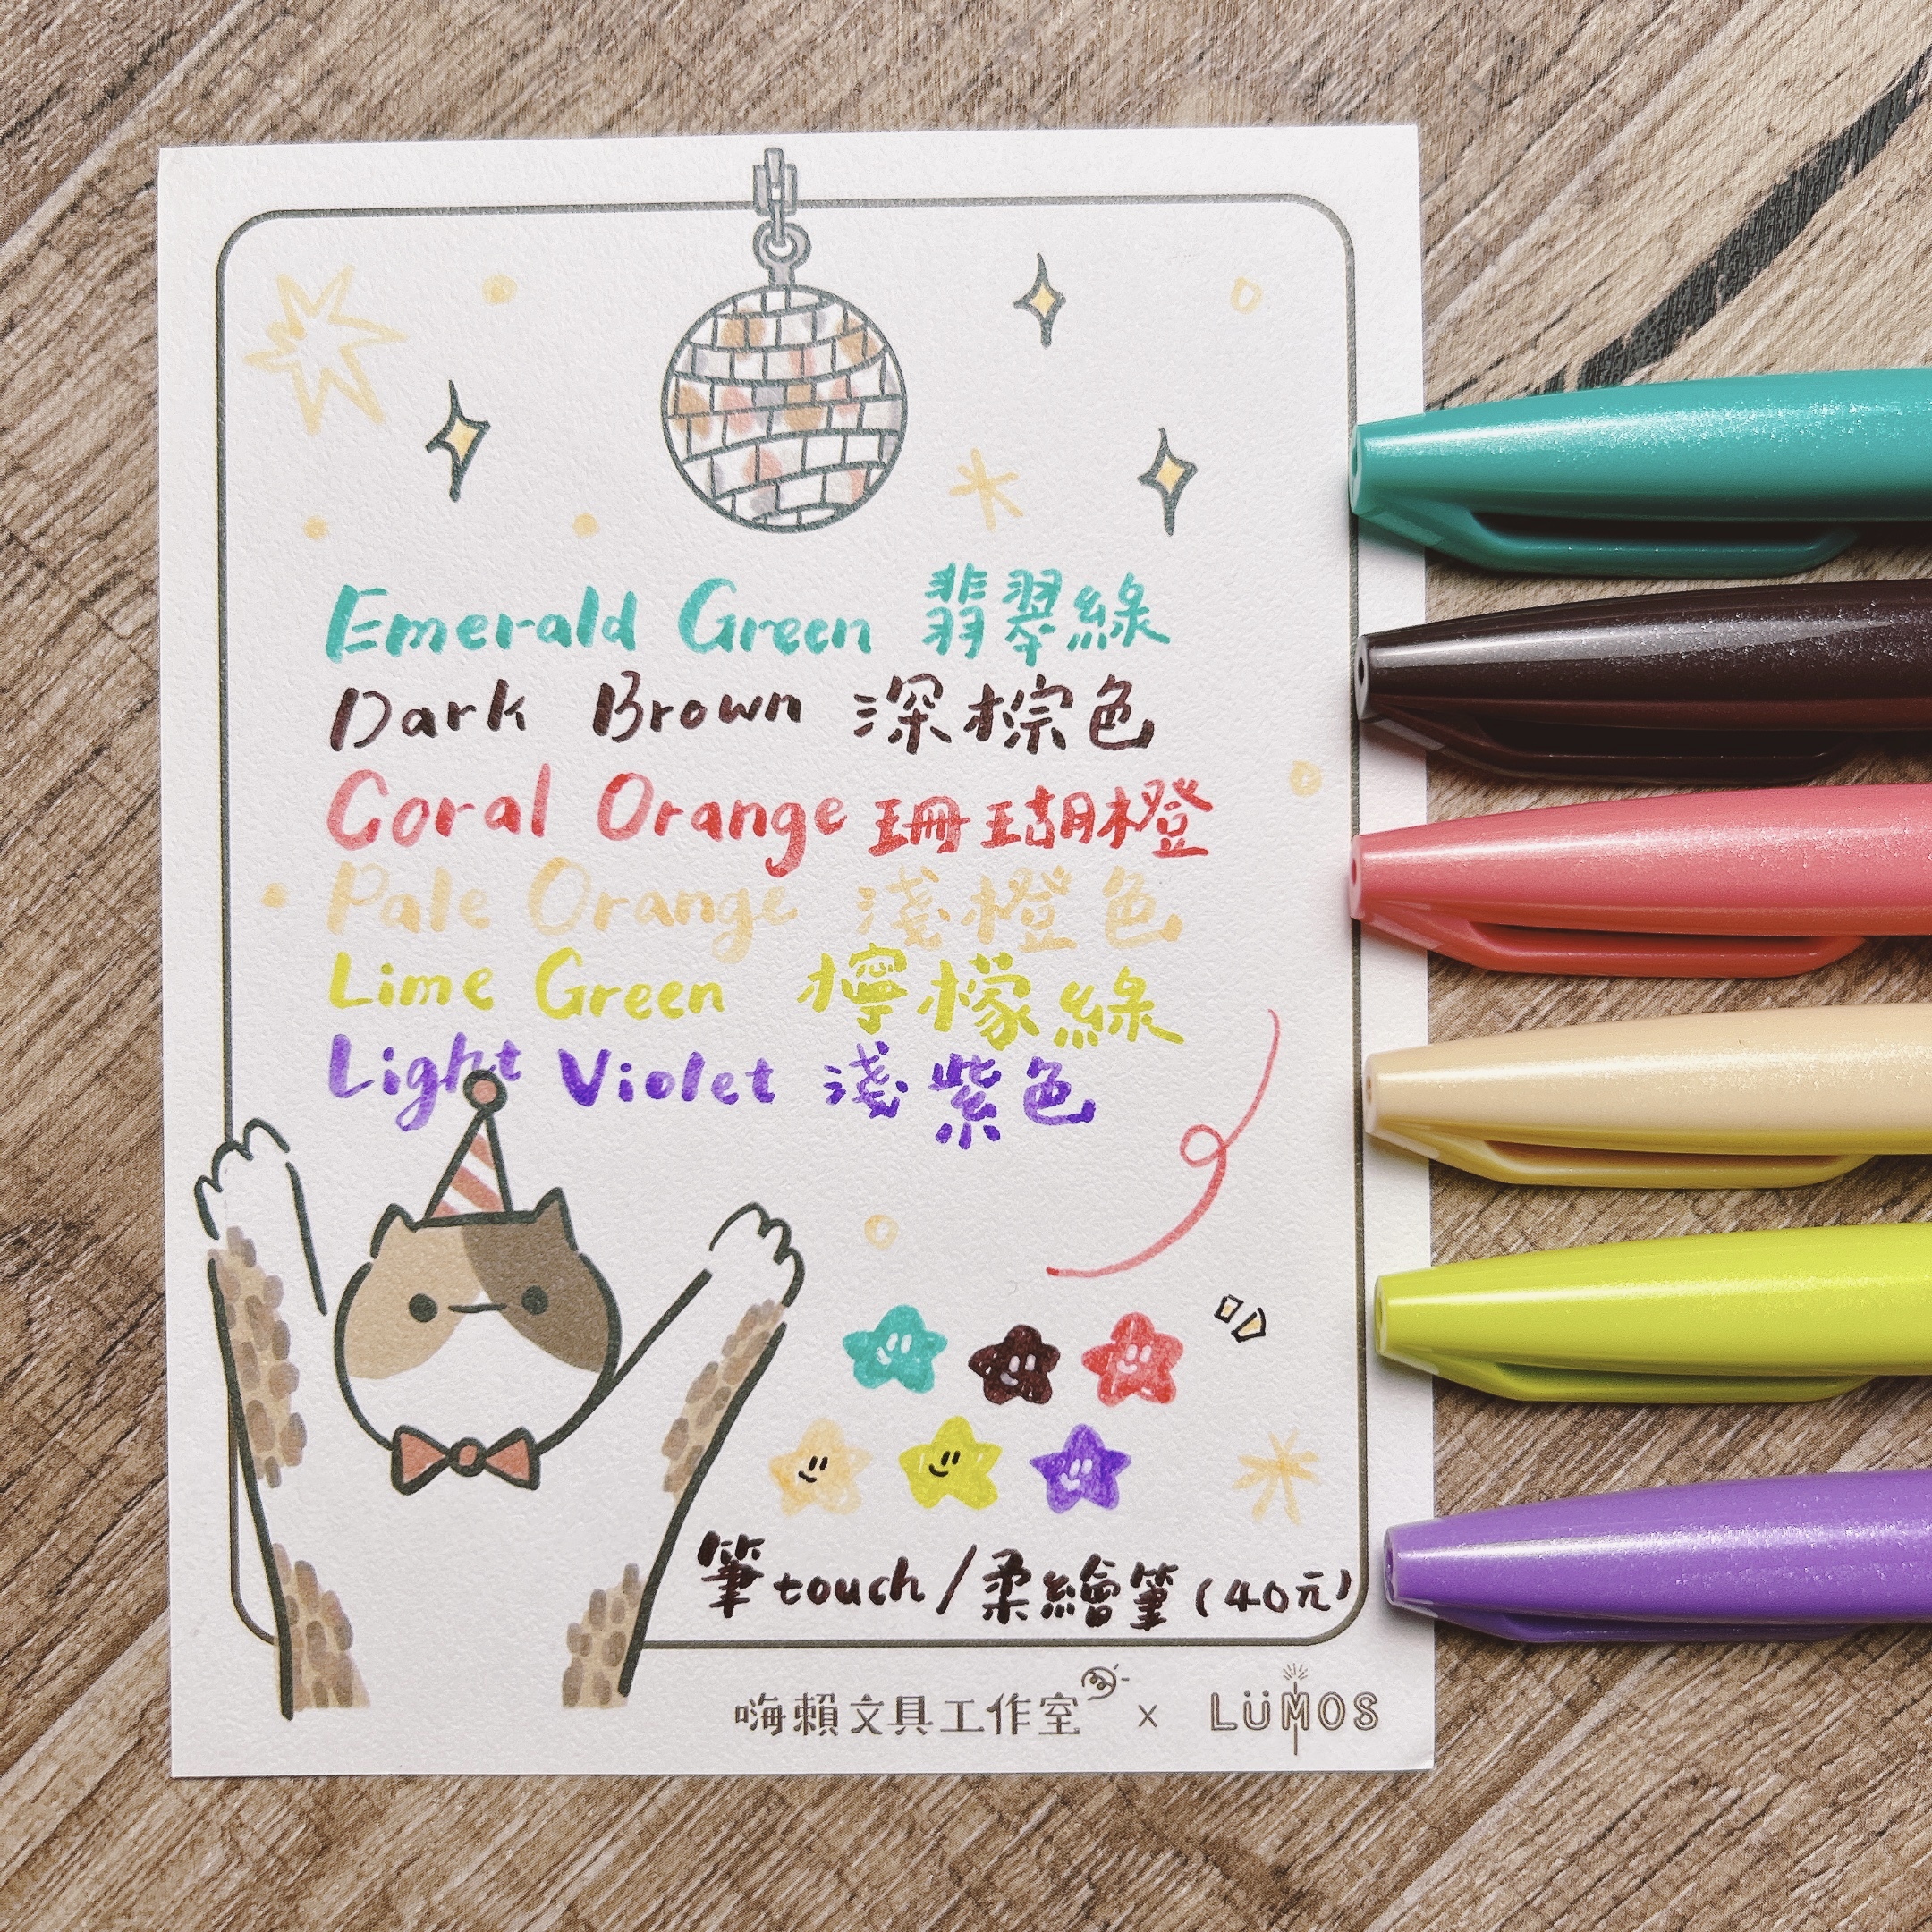 Emerald Green 翡翠綠
Dark Brown 深棕色
Coral Orange 珊瑚橙
Pale Orange 淺橙色
Lime Green 檸檬綠
Light Violet 淺紫色
筆touch/柔繪筆(40元)
嗨賴文具工作室 x LÜMOS